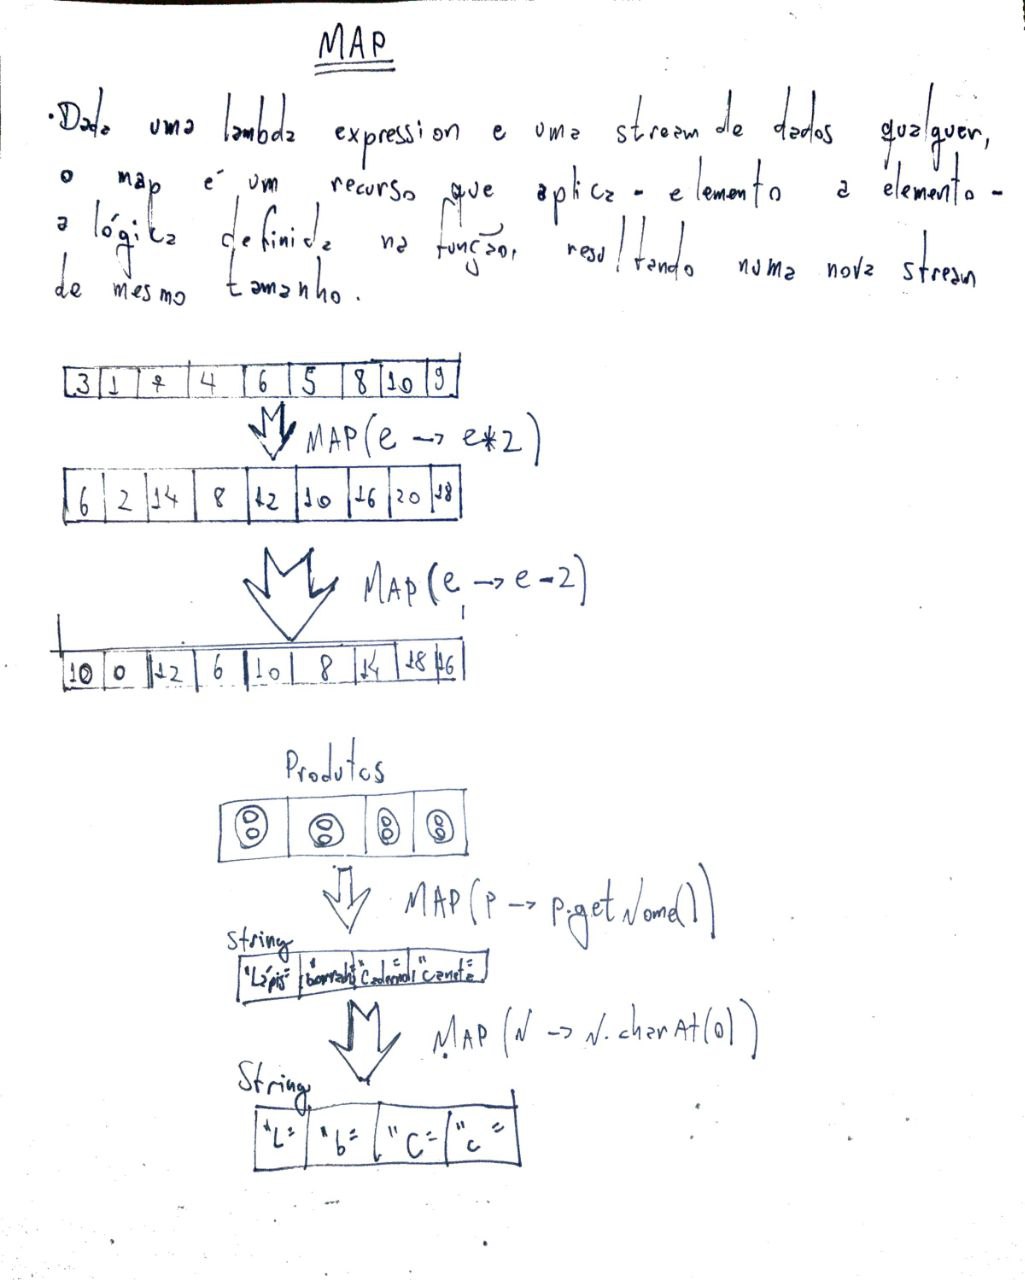 MAP
·Dada uma lambda expression e uma stream de dados qualquer,
o map é um recurso que aplica - elemento a elemento -
a lógica definida na função, resultando numa nova stream
de mesmo tamanho.
3 1 7 4 6 5 8 10 9
MAP(e -> e*2)
6 2 14 8 12 10 16 20 18
MAP(e -> e-2)
10 0 12 6 10 8 14 18 16
Produtos
MAP(P -> P.getNome())
String
"Lápis" "borracha" "Caderno" "caneta"
MAP(N -> N.charAt(0))
String
"L" "b" "C" "c"